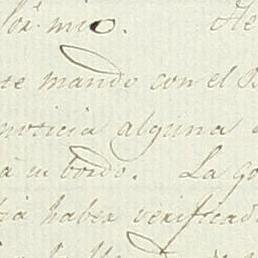 mio. He
te mando con el B
noticia alguna
a su bordo. La go
haber verificad